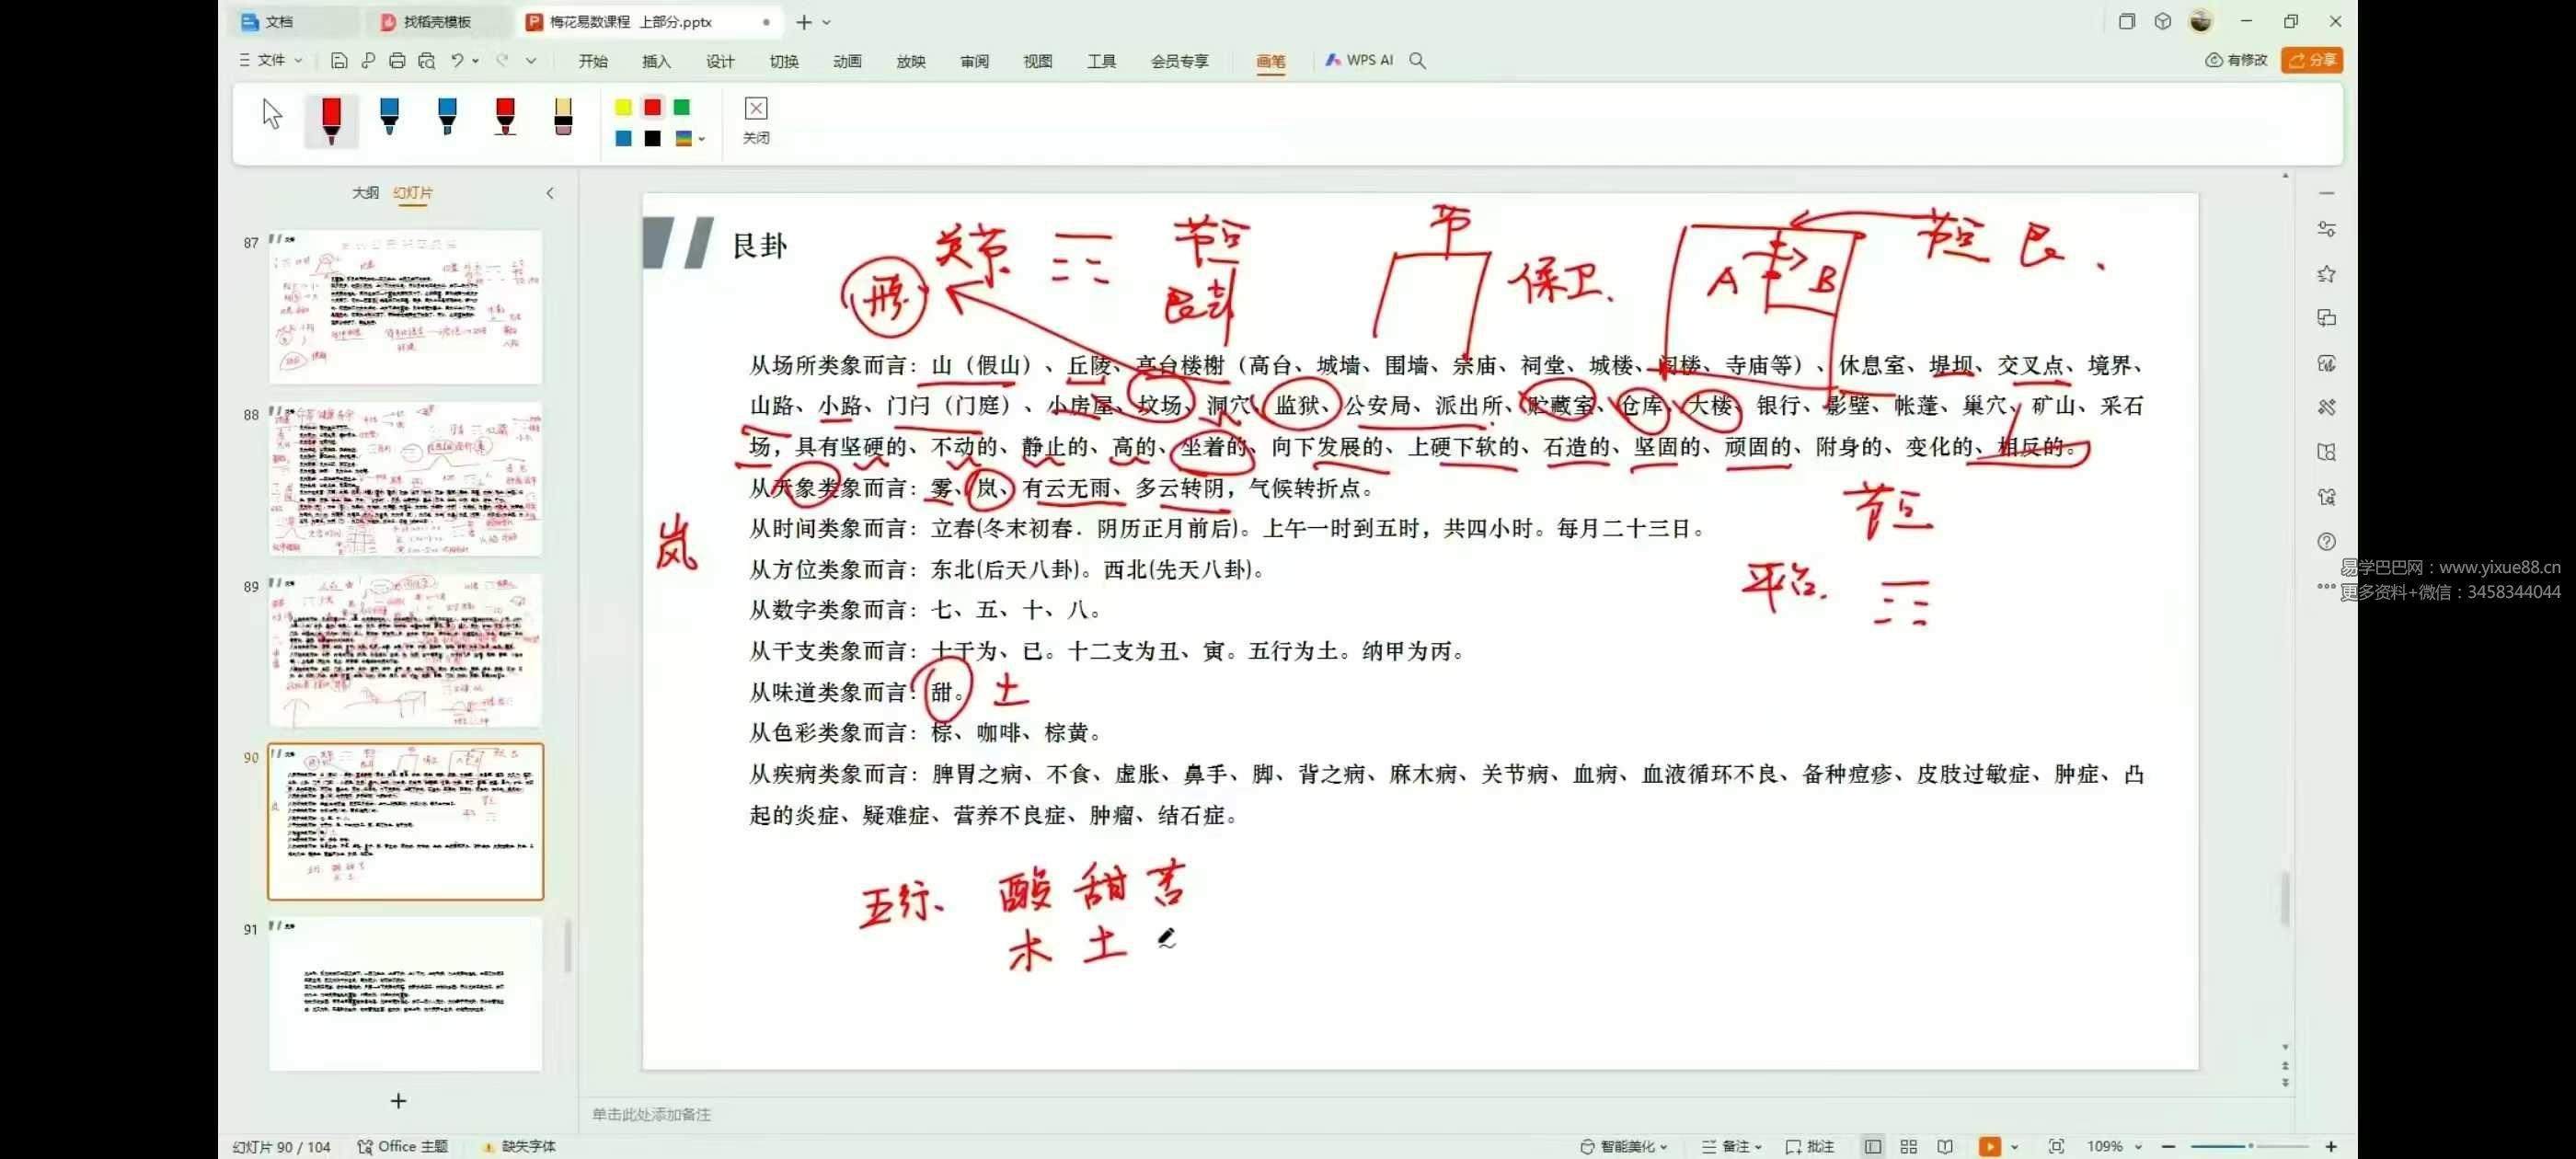 文档 找稻壳模板 梅花易数课程 上部分.pptx
文件 开始 插入 设计 切换 动画 放映 审阅 视图 工具 会员专享 画笔 WPS AI 有修改 分享
关闭
大纲 幻灯片
87
88
89
90
91
艮卦
关节 节点 节 保卫 A B 节点 艮
从场所类象而言：山（假山）、丘陵、高台楼榭（高台、城墙、围墙、宗庙、祠堂、城楼、阁楼、寺庙等）、休息室、堤坝、交叉点、境界、
山路、小路、门闩（门庭）、小房屋、坟场、洞穴、监狱、公安局、派出所、贮藏室、仓库、大楼、银行、影壁、帐蓬、巢穴、矿山、采石
场，具有坚硬的、不动的、静止的、高的、坐着的、向下发展的、上硬下软的、石造的、坚固的、顽固的、附身的、变化的、相反的。
从天象类象而言：雾、岚、有云无雨、多云转阴，气候转折点。
节点
从时间类象而言：立春(冬末初春．阴历正月前后)。上午一时到五时，共四小时。每月二十三日。
岚
从方位类象而言：东北(后天八卦)。西北(先天八卦)。
平台
从数字类象而言：七、五、十、八。
从干支类象而言：十干为、已。十二支为丑、寅。五行为土。纳甲为丙。
从味道类象而言：甜。 土
从色彩类象而言：棕、咖啡、棕黄。
从疾病类象而言：脾胃之病、不食、虚胀、鼻手、脚、背之病、麻木病、关节病、血病、血液循环不良、备种痘疹、皮肢过敏症、肿症、凸
起的炎症、疑难症、营养不良症、肿瘤、结石症。
五行、 酸 甜 苦
木 土
易学巴巴网：www.yixue88.cn
更多资料+微信：3458344044
单击此处添加备注
幻灯片 90 / 104 Office 主题 缺失字体 智能美化 备注 批注 109%